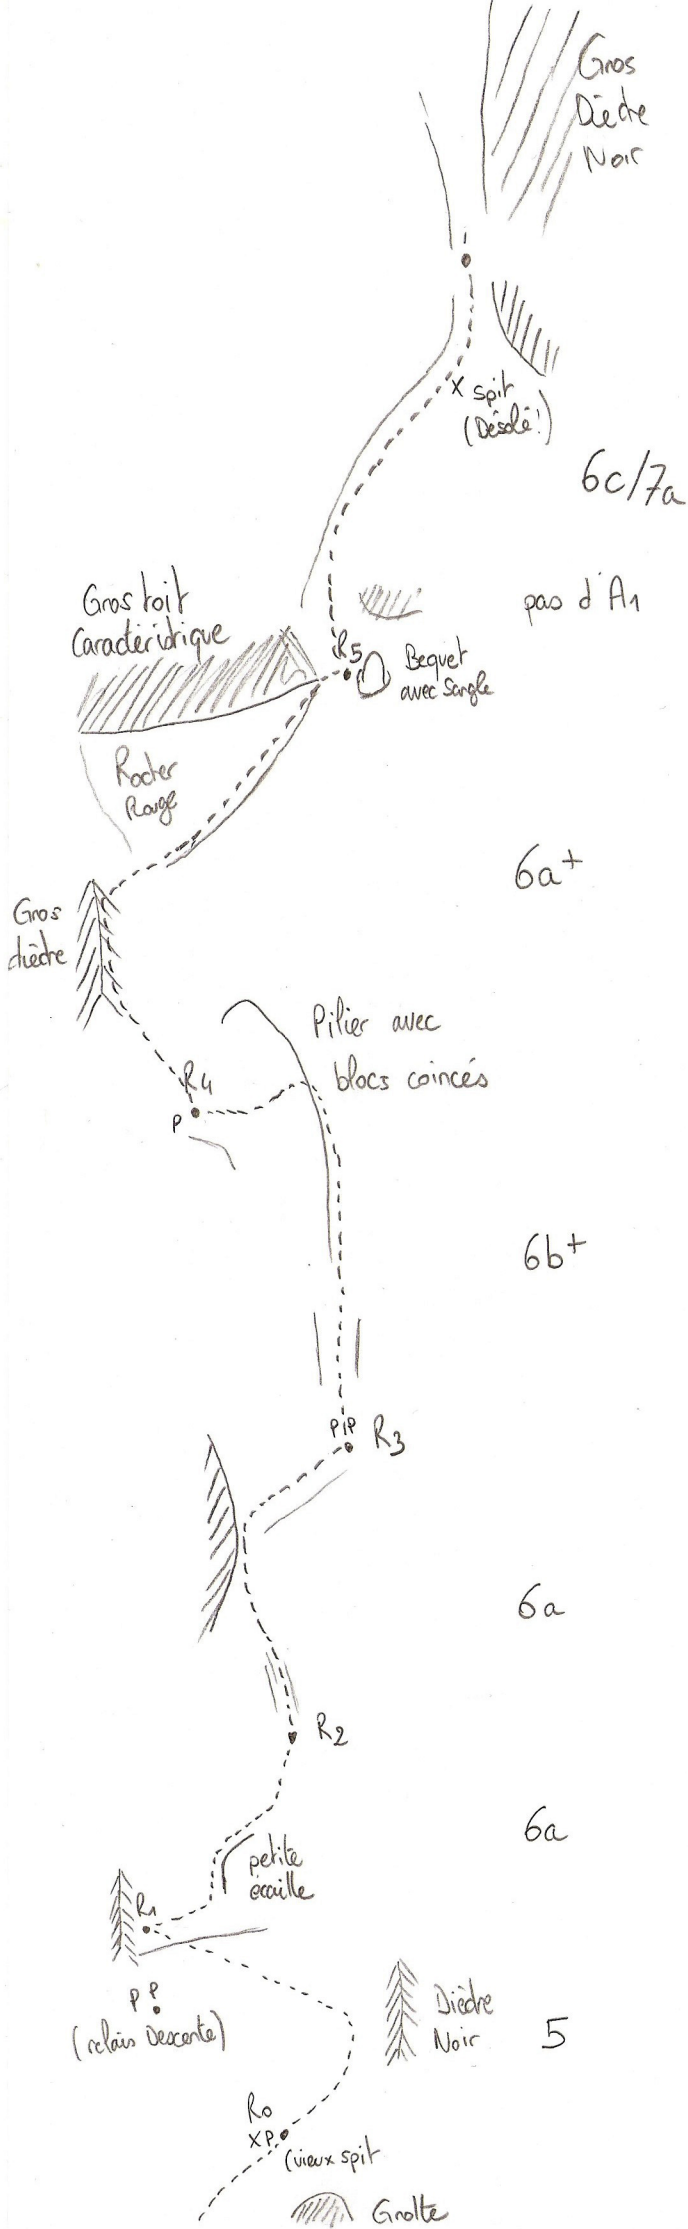 Gros
Dièdre
Noir
x spit
(Désolé!)
6c/7a
pas d'A1
Gros toit
Caractéristique
R5
Bequet
avec Sangle
Rocher
Rouge
6a+
Gros
dièdre
Pilier avec
blocs coincés
R4
P
6b+
P P
R3
6a
R2
6a
petite
écaille
R1
P P
(relais Descente)
Dièdre
Noir
5
R0
XP
(vieux spit
Grotte